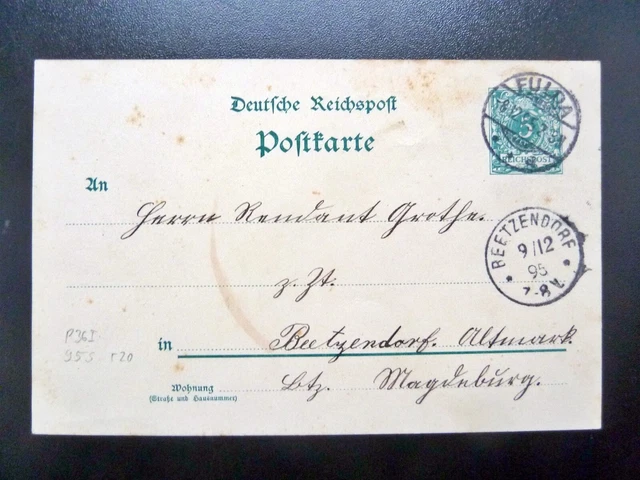 Deutsche Reichspost
Postkarte
FULDA
5
REICHSPOST
An
Herrn Rendant Grothe.
BEETZENDORF
9/12
95
7-8V.
z. Zt.
in Beetzendorf. Altmark.
Wohnung
(Straße und Hausnummer)
Btz. Magdeburg.
P36I
95 s r20